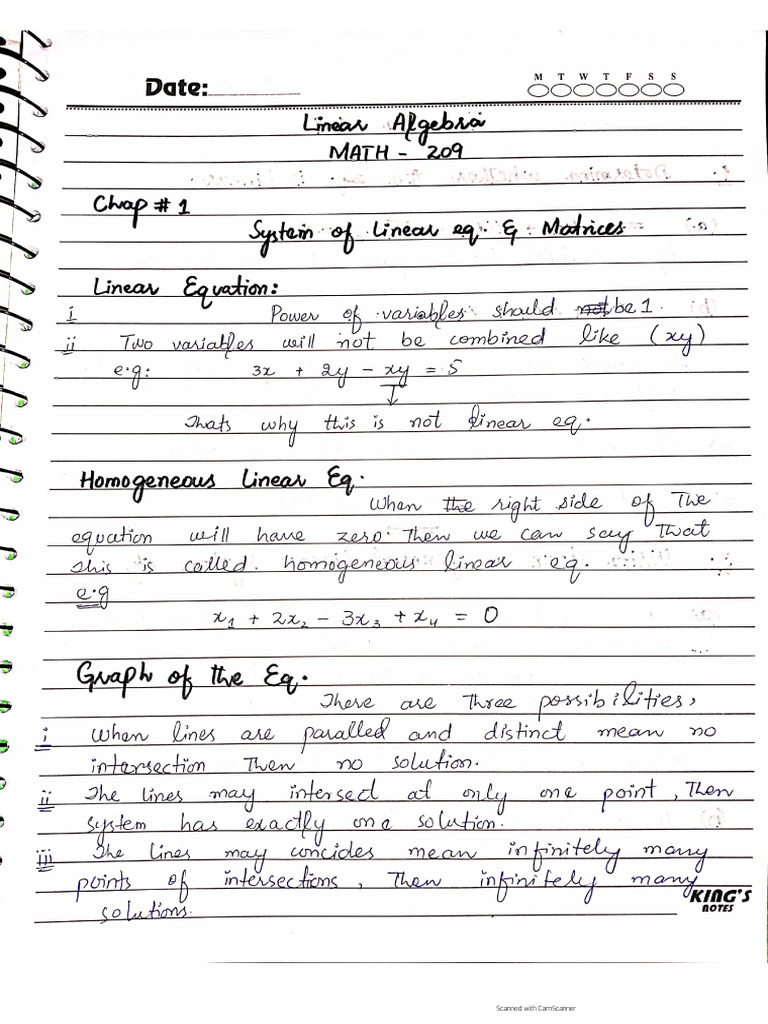 Date:
M T W T F S S
Linear Algebra
MATH - 209
Chap # 1
System of Linear eq. & Matrices
Linear Equation:
i Power of variables should not be 1.
ii Two variables will not be combined like (xy)
e.g: 3x + 2y - xy = 5
↓
Thats why this is not linear eq.
Homogeneous Linear Eq.
When the right side of the
equation will have zero. Then we can say that
this is called homogeneous linear eq.
e.g
x₁ + 2x₂ - 3x₃ + x₄ = 0
Graph of the Eq.
There are three possibilities,
i When lines are paralled and distinct mean no
intersection then no solution.
ii The lines may intersed at only one point, Then
system has exactly one solution.
iii The lines may concides mean infinitely many
points of intersections, Then infinitely many
solutions.
KING'S
NOTES
Scanned with CamScanner